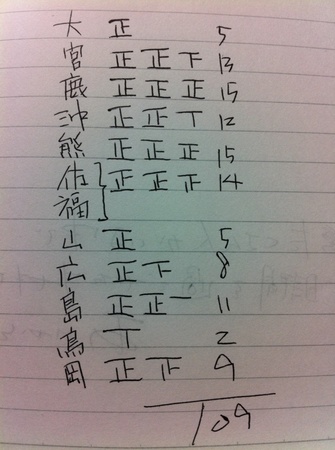 大 正 5
宮 正 正 下 13
鹿 正 正 正 15
沖 正 正 丅 12
熊 正 正 正 15
佐 正 正 正 14
福
山 正 5
広 正 下 8
島 正 正 一 11
鳥 丅 2
岡 正 正 9
109